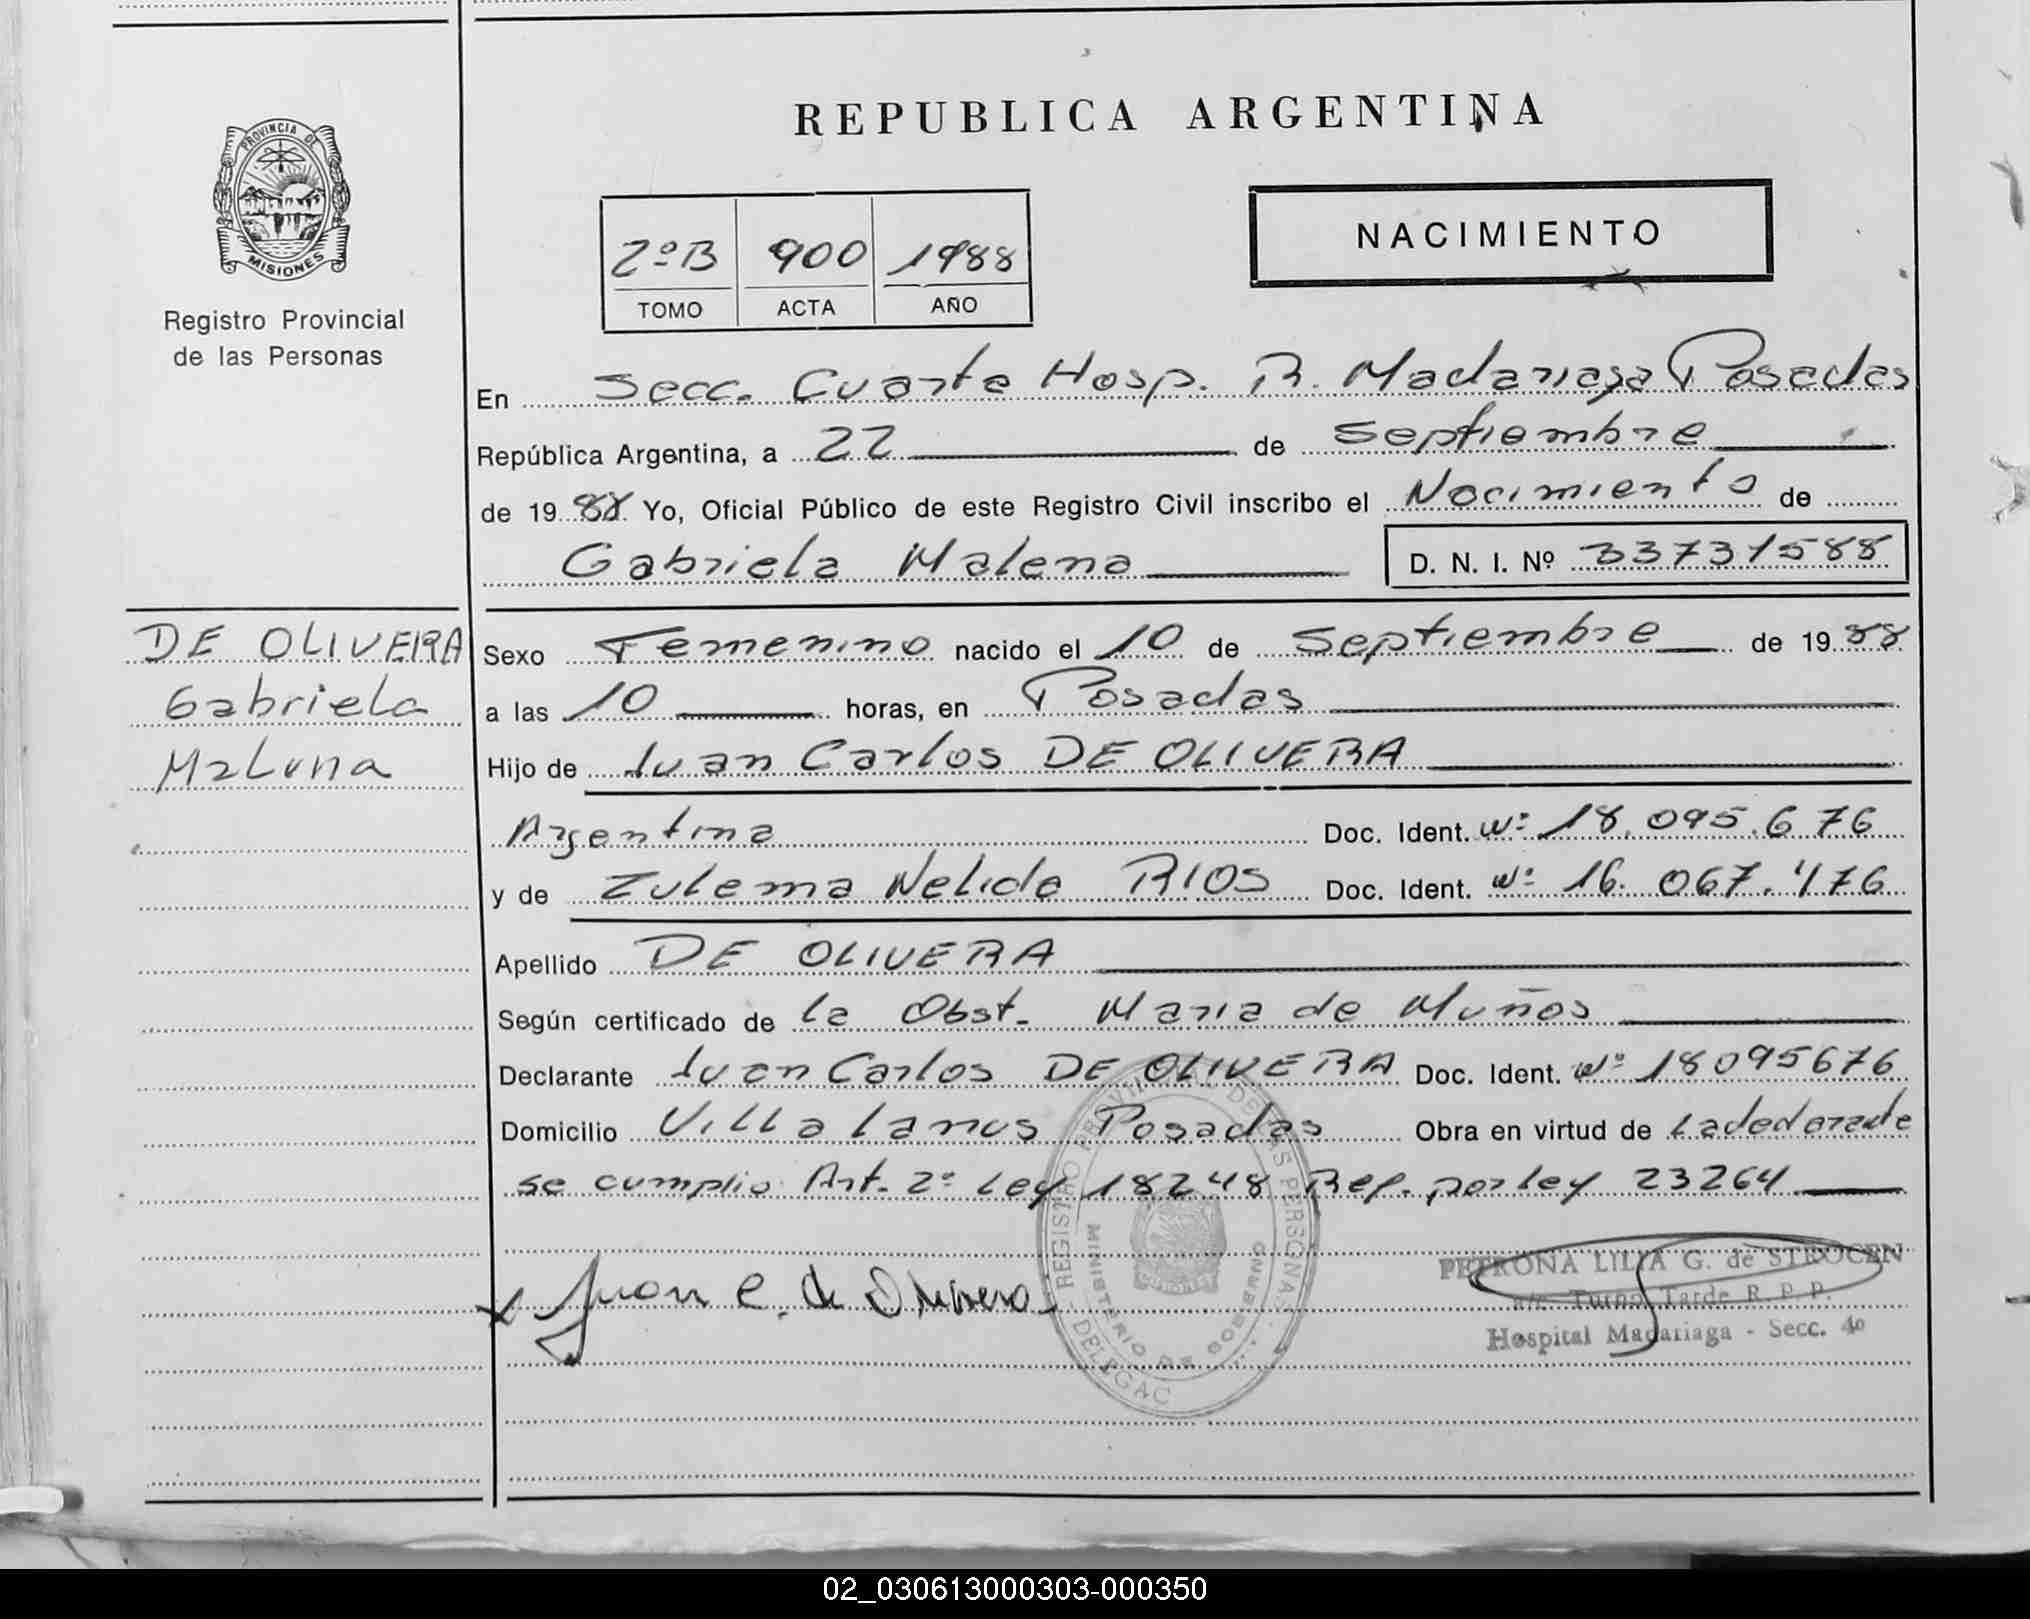 REPUBLICA ARGENTINA
PROVINCIA DE
MISIONES
Registro Provincial
de las Personas
NACIMIENTO
2º B 900 1988
TOMO ACTA AÑO
En Secc. Cuarta Hosp. R. Madariaga Posadas
República Argentina, a 22 de Septiembre
de 1988 Yo, Oficial Público de este Registro Civil inscribo el Nacimiento de
Gabriela Malena D. N. I. Nº 33731588
DE OLIVERA
Gabriela
Malena
Sexo Femenino nacido el 10 de Septiembre de 1988
a las 10 horas, en Posadas
Hijo de Juan Carlos DE OLIVERA
Argentina Doc. Ident. Nº 18.095.676
y de Zulema Nelida RIOS Doc. Ident. Nº 16.067.476
Apellido DE OLIVERA
Según certificado de la Obst. Maria de Muños
Declarante Juan Carlos DE OLIVERA Doc. Ident. Nº 18095676
Domicilio Villa Lanus Posadas Obra en virtud de
se cumplio Art. 2º Ley 18248 Ref. por ley 23264
Juan C. de Olivera
REGISTRO PROVINCIAL DE LAS PERSONAS
MINISTERIO DE GOBIERNO
PETRONA LILIA G. de STROCEN
a/c. Turno Tarde R. P. P.
Hospital Madariaga - Secc. 4º
02_030613000303-000350